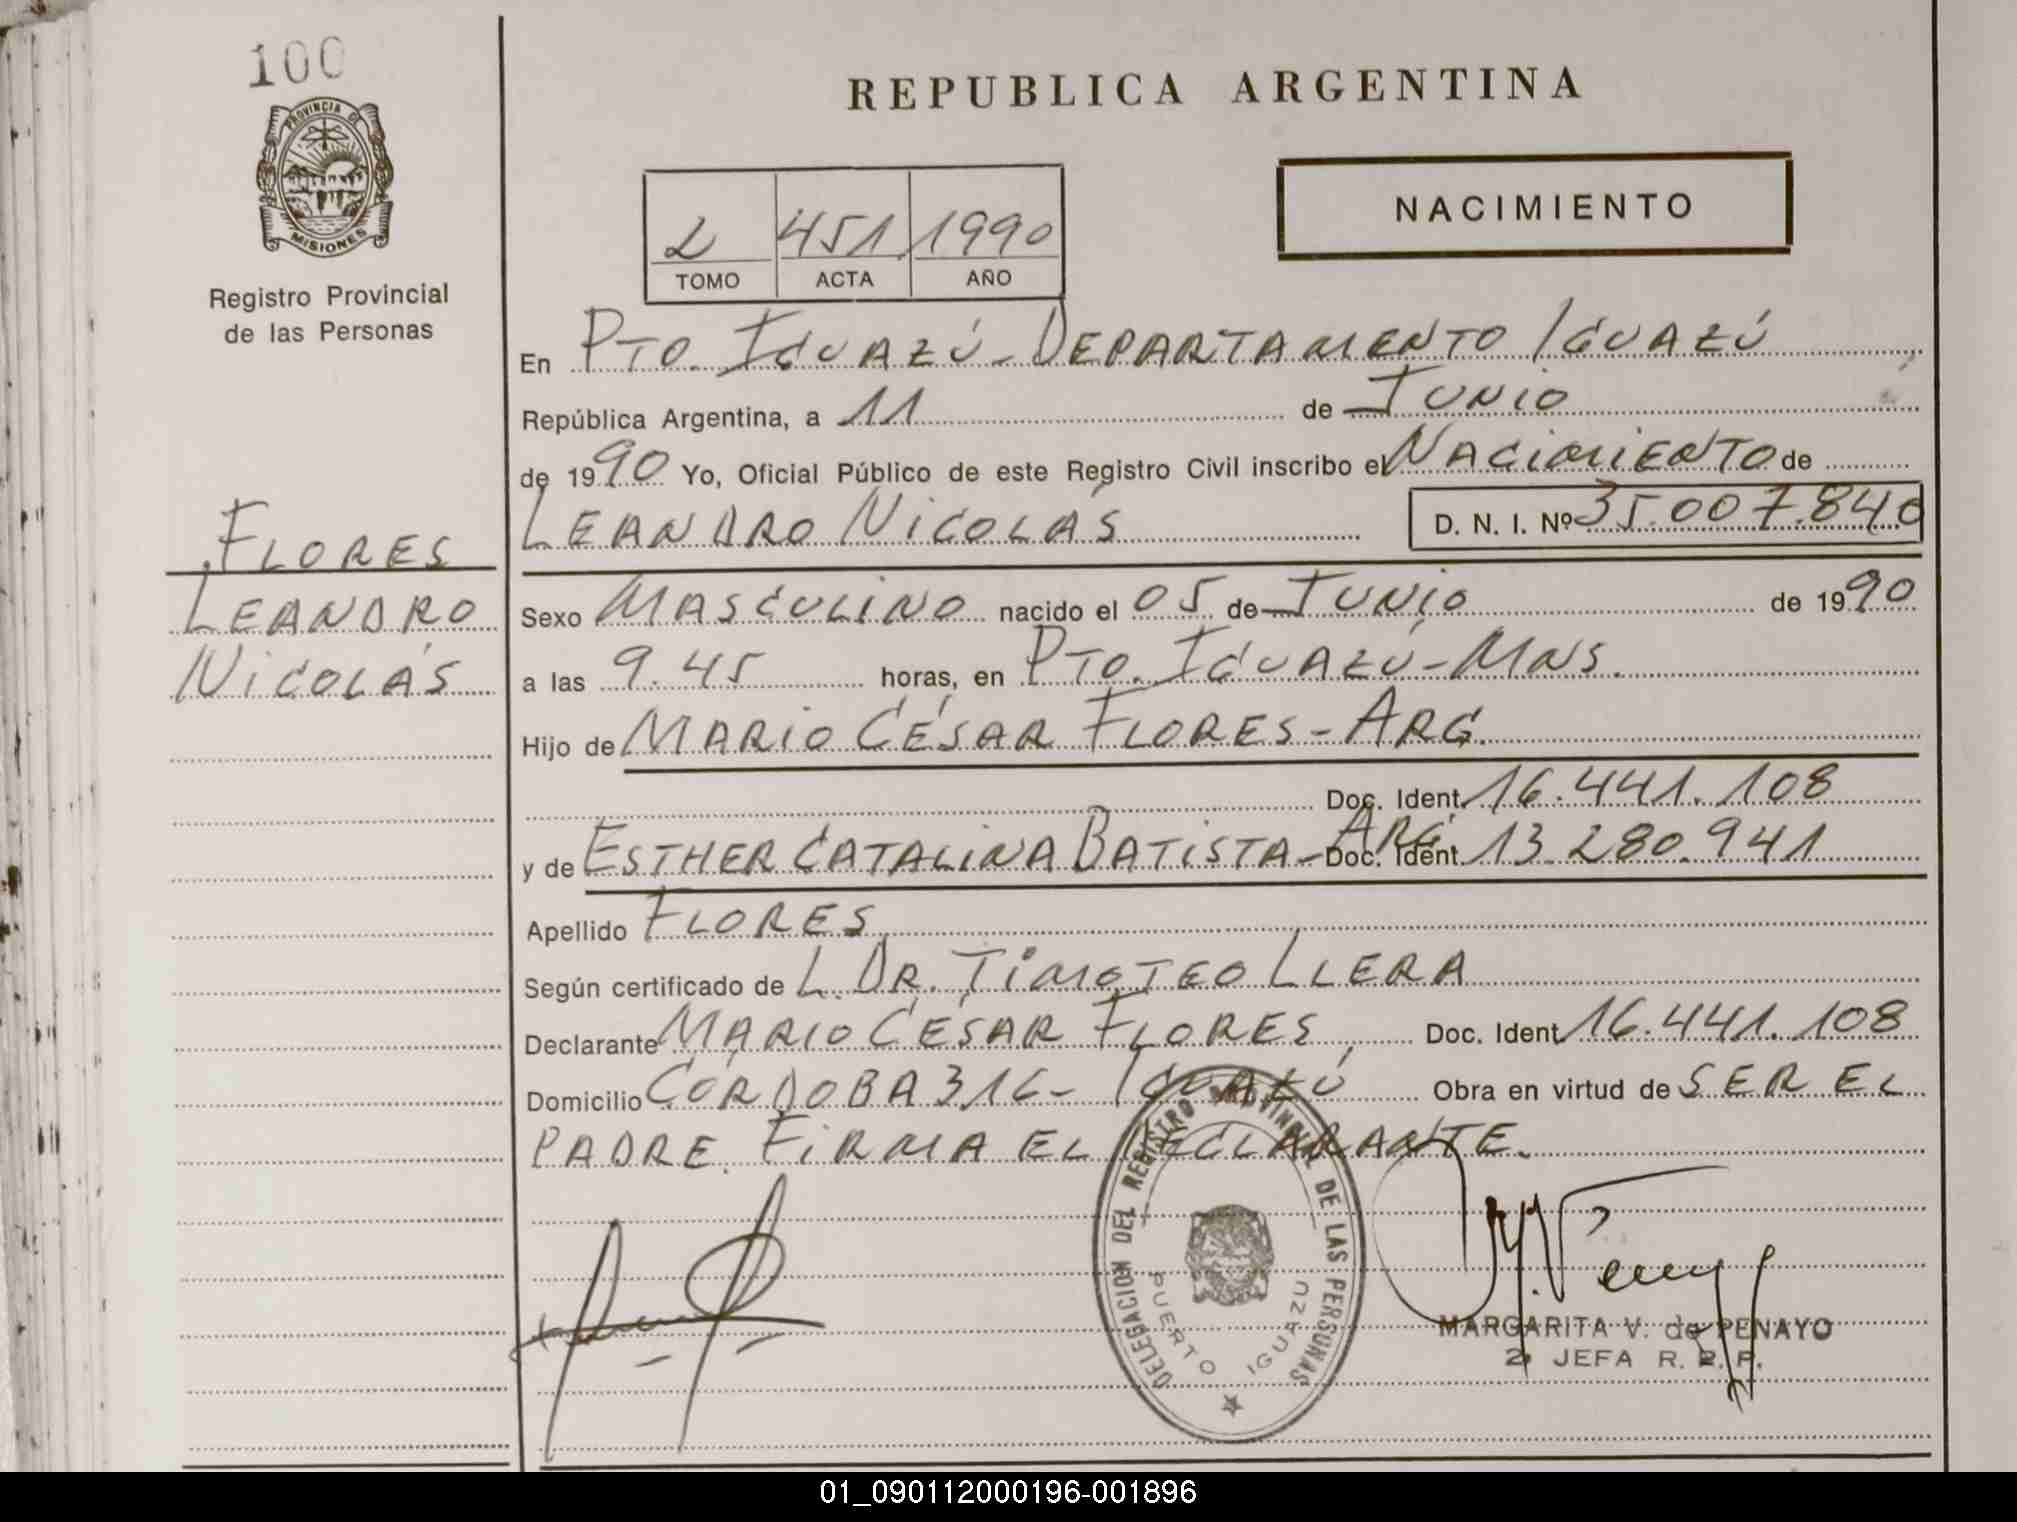 100
PROVINCIA DE
MISIONES
Registro Provincial
de las Personas
FLORES
LEANDRO
NICOLÁS
REPUBLICA ARGENTINA
2 451 1990
TOMO ACTA AÑO
NACIMIENTO
En PTO. IGUAZÚ - DEPARTAMENTO IGUAZÚ
República Argentina, a 11 de JUNIO
de 1990 Yo, Oficial Público de este Registro Civil inscribo el NACIMIENTO de
LEANDRO NICOLÁS D. N. I. Nº 35.007.840
Sexo MASCULINO nacido el 05 de JUNIO de 1990
a las 9.45 horas, en PTO. IGUAZÚ - MNS.
Hijo de MARIO CÉSAR FLORES - ARG.
Doc. Ident. 16.441.108
y de ESTHER CATALINA BATISTA - ARG. Doc. Ident. 13.280.941
Apellido FLORES
Según certificado de L. DR. TIMOTEO LLERA
Declarante MARIO CÉSAR FLORES, Doc. Ident 16.441.108
Domicilio CÓRDOBA 316 - IGUAZÚ Obra en virtud de SER EL
PADRE. FIRMA EL DECLARANTE.
DELEGACION DEL REGISTRO PROVINCIAL DE LAS PERSONAS
PUERTO IGUAZU
MARGARITA V. de PENAYO
2ª JEFA R. P. P.
01_090112000196-001896